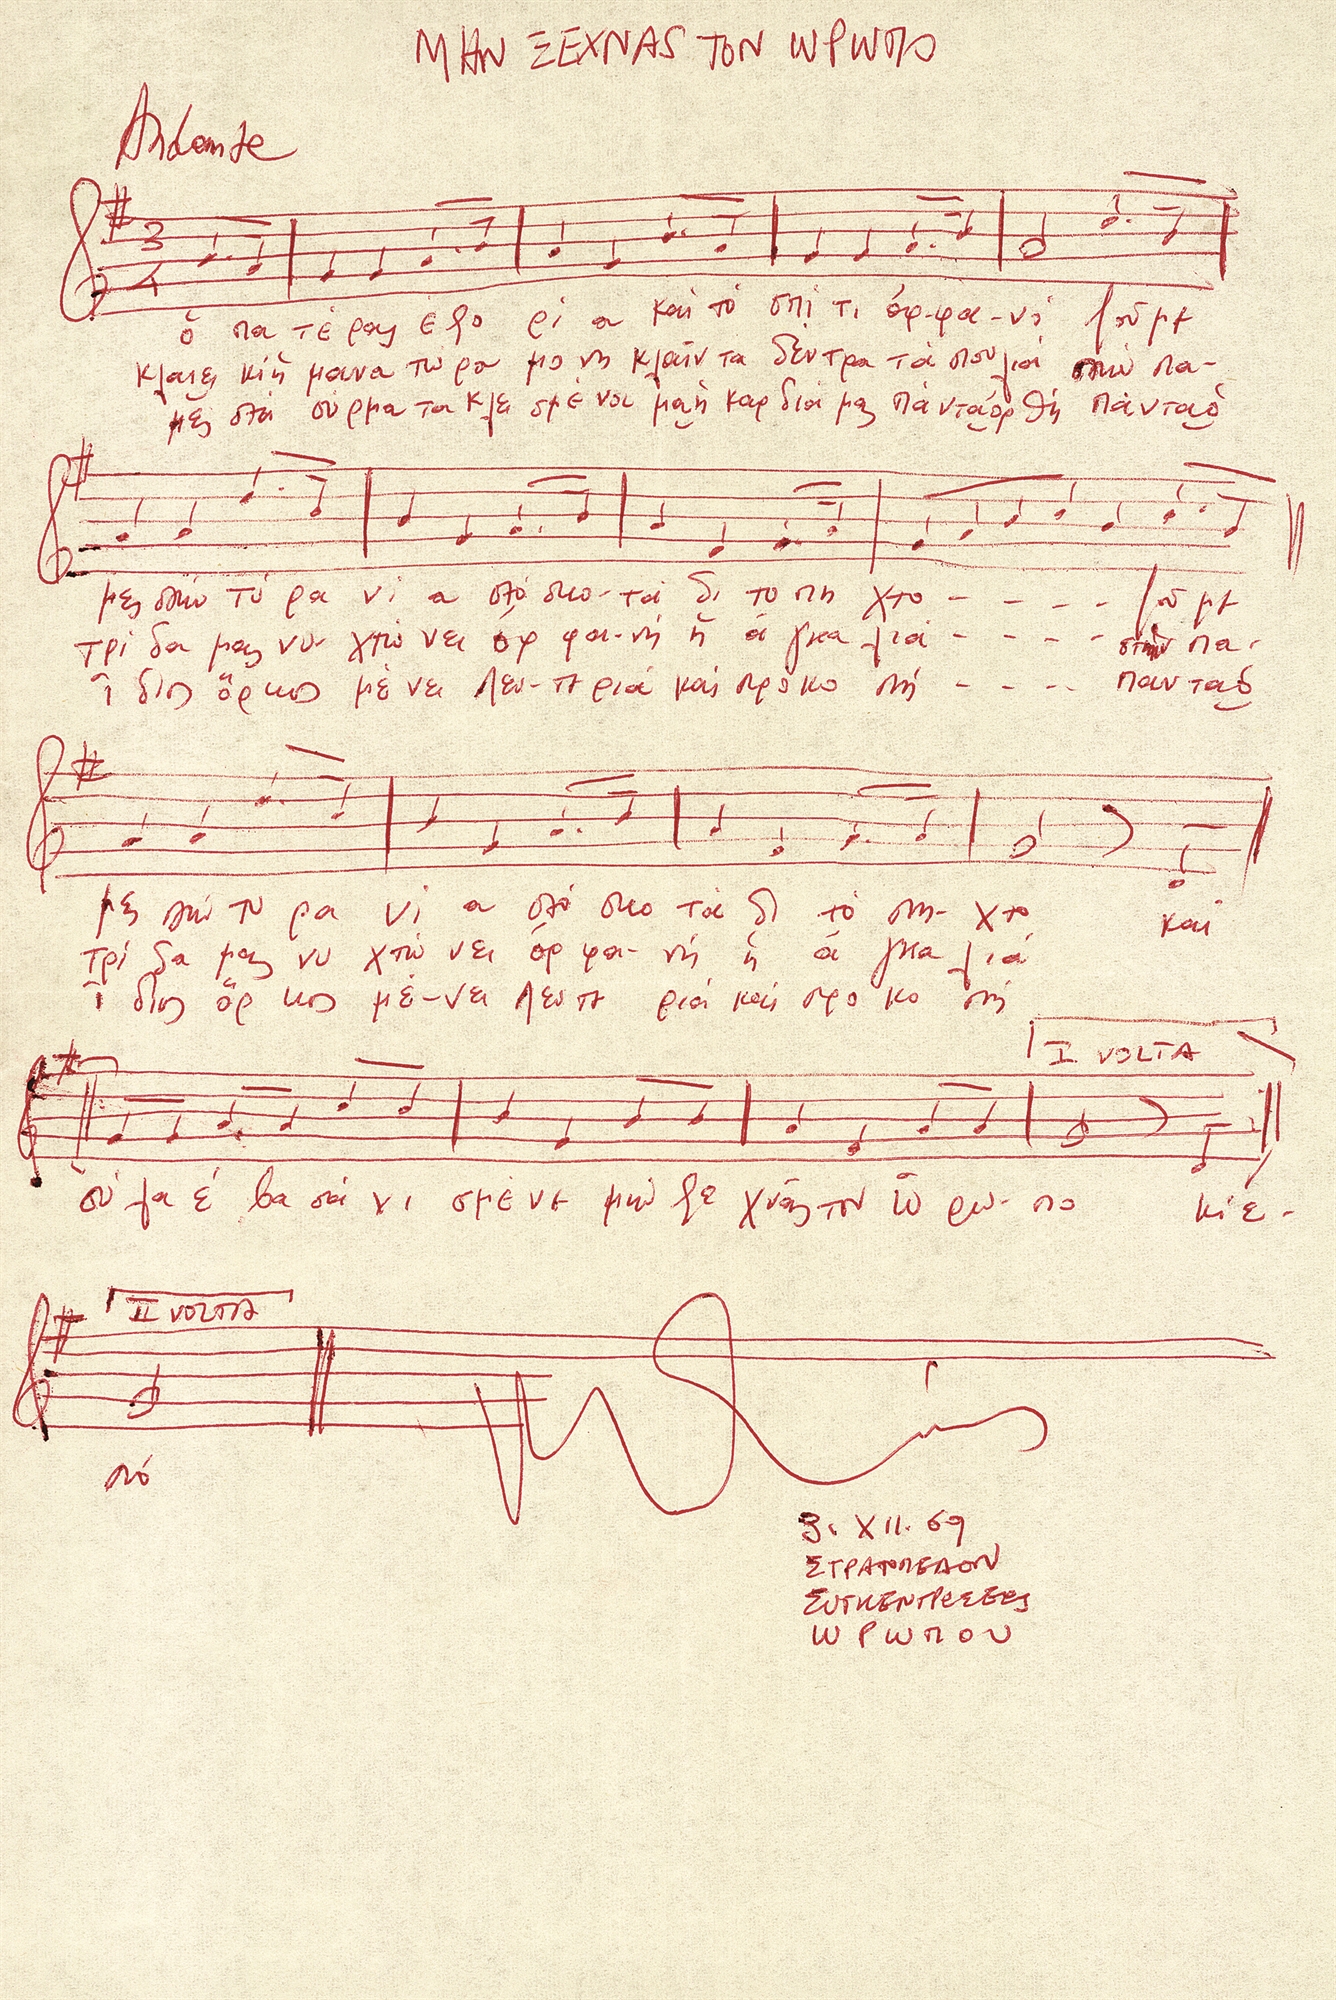 ΜΗΝ ΞΕΧΝΑΣ ΤΟΝ ΩΡΩΠΟ
Andante
3
4
ὁ πα τέ ρας ἐ ξο ρί α καὶ τὸ σπί τι ὀρ-φα-νό ζοῦμε
κλαιει κι ἡ μανα τώ ρα μο νη κλαῖν τα δέντρα τὰ πουλιά στὴν πα-
μες στὰ συρμα τα κλει σμέ νοι μα ἡ καρ διά μας πάντα ὀρ θή πάντα ὁ
μες στὴν τυ ρα νί α στὸ σκο-τά δι το πη χτο - - - - ζοῦμε
τρί δα μας νυ- χτώ νει ὀρ φα-νή ἡ ἀ γκα λιά - - - - στὴν πα-
ἴ διος ὅρ κος μέ νει λευ-τε ριά καὶ προ κο πή - - - - παντα ὁ
μες στὴν τυ ρα νί α στὸ σκο τά δι τὸ πη- χτο και
τρί δα μας νυ χτώ νει ὀρ φα- νή ἡ ἀ γκα λιά
ἴ διος ὅρ κος μέ-νει λευτε ριά καὶ προ κο πή
I VOLTA
σὺ λα έ βα σα νι σμένε μὴν ξε χνᾶς τον Ὠ ρω- πο κι έ-
II VOLTA
πό
3. XII. 69
ΣΤΡΑΤΟΠΕΔΟΝ
ΣΥΓΚΕΝΤΡΩΣΕΩΣ
ΩΡΩΠΟΥ